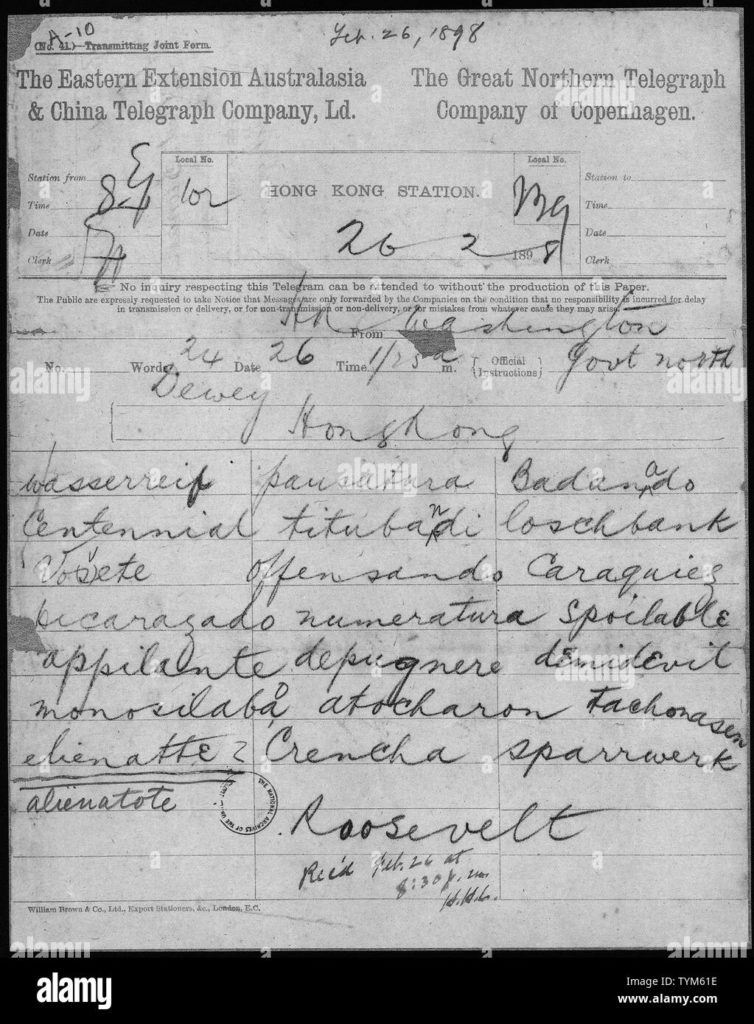 A-10
Feb. 26, 1898
(No. 41.)—Transmitting Joint Form.
The Eastern Extension Australasia & China Telegraph Company, Ld.
The Great Northern Telegraph Company of Copenhagen.
Station from
Time
Date
Clerk
Local No.
102
HONG KONG STATION.
26 2 1898
Local No.
Station to
Time
Date
Clerk
No inquiry respecting this Telegram can be attended to without the production of this Paper.
The Public are expressly requested to take Notice that Messages are only forwarded by the Companies on the condition that no responsibility is incurred for delay
in transmission or delivery, or for non-transmission or non-delivery, or for mistakes from whatever cause they may arise.
From Washington
No. Words 24 Date 26 Time 1/25 a m. {Official Instructions} Govt north
Dewey
Hongkong
wasserreif pausatura Badanado
Centennial titubandi loschbank
Vosete offensando Caraquiez
bicarazado numeratura spoilable
appilante depugnere demidevil
monosilabo atocharon tachonasen
elienatte? Crencha sparrwerk
alienatote
Roosevelt
Rec'd Feb. 26 at
8:30 p.m.
THE NATIONAL ARCHIVES OF THE
William Brown & Co., Ltd., Export Stationers, &c., London, E.C.
alamy
Image ID: TYM61E
www.alamy.com